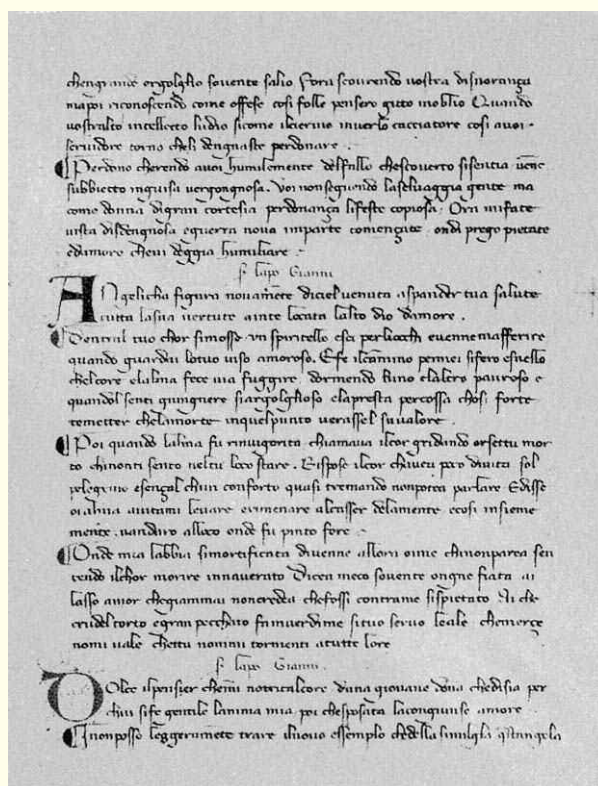 chengrande orgolglio sovente salio Fora scovrendo vostra disnoranza
mapoi riconoscendo come offese cosi folle pensero gitto inoblio Quando
vostralto intellecto ludio sicome ilcervio inverlo cacciatore cosi avoi
servidore torno cheli dengniaste perdonare .
Perdono cherendo avoi humilemente delfallo chescoverto sisentia vene
subbiecto inguisa vergongnosa . Voi nonseguendo laselvaggia gente ma
come donna digran cortesia perdonanza lifeste copiosa . Ora mifate
vista disdengnosa eguerra nova imparte comenzate . ondi prego pietate
edamore chevi deggia humiliare .
lapo Gianni
ANgelicha figura novamente diciel venuta aspander tua salute
tutta lasua vertute ainte locata lalto dio damore .
Dentral tuo chor simosse un spiritello esci perliocchi evennemafferire
quando guardai lotuo viso amoroso . Efe ilcamino permei sifero esnello
chelcore elalma fece via fuggire . dormendo luno elaltro pauroso e
quandol senti giungnere siargolglioso elapresta percossa chosi forte
temetter chelamorte inquelpunto verassel suvalore .
Poi quando lalma fu rinvigorita chiamava ilcor gridando orsettu mor
to chinonti sento neltu loco stare . Rispose ilcor chaveu poco divita sol
pelegrino esenzal chun conforto quasi tremando nonpotea parlare Edisse
oialma aiutami levare erimenare alcasser delamente ecosi insieme
mente . nandaro alloco onde fu pinto fore .
Onde mia labbia simortificata divenne allora oime chinonparea sen
tendo ilchor morire innaverato Dicea meco sovente ongne fiata ai
lasso amor chegiammai noncredea chefossi contrame sispietato Ai che
crudel torto egran pecchato fainverdime situo servo leale chemerçe
nomi vale chettu nommi tormenti atutte lore
lapo Gianni .
DOlce ilpensier chemi notricalcore duna giovane dona chedisia per
chui sife gentile lanima mia poi chesposata lacongiunse amore
I nonposso leggeramente trare ilnovo essemplo chedella simiglia